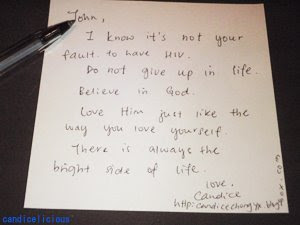 John,
I know it's not your
fault to have HIV.
Do not give up in life.
Believe in God.
Love Him just like the
way you love yourself.
There is always the
bright side of life.
love,
Candice
candicelicious